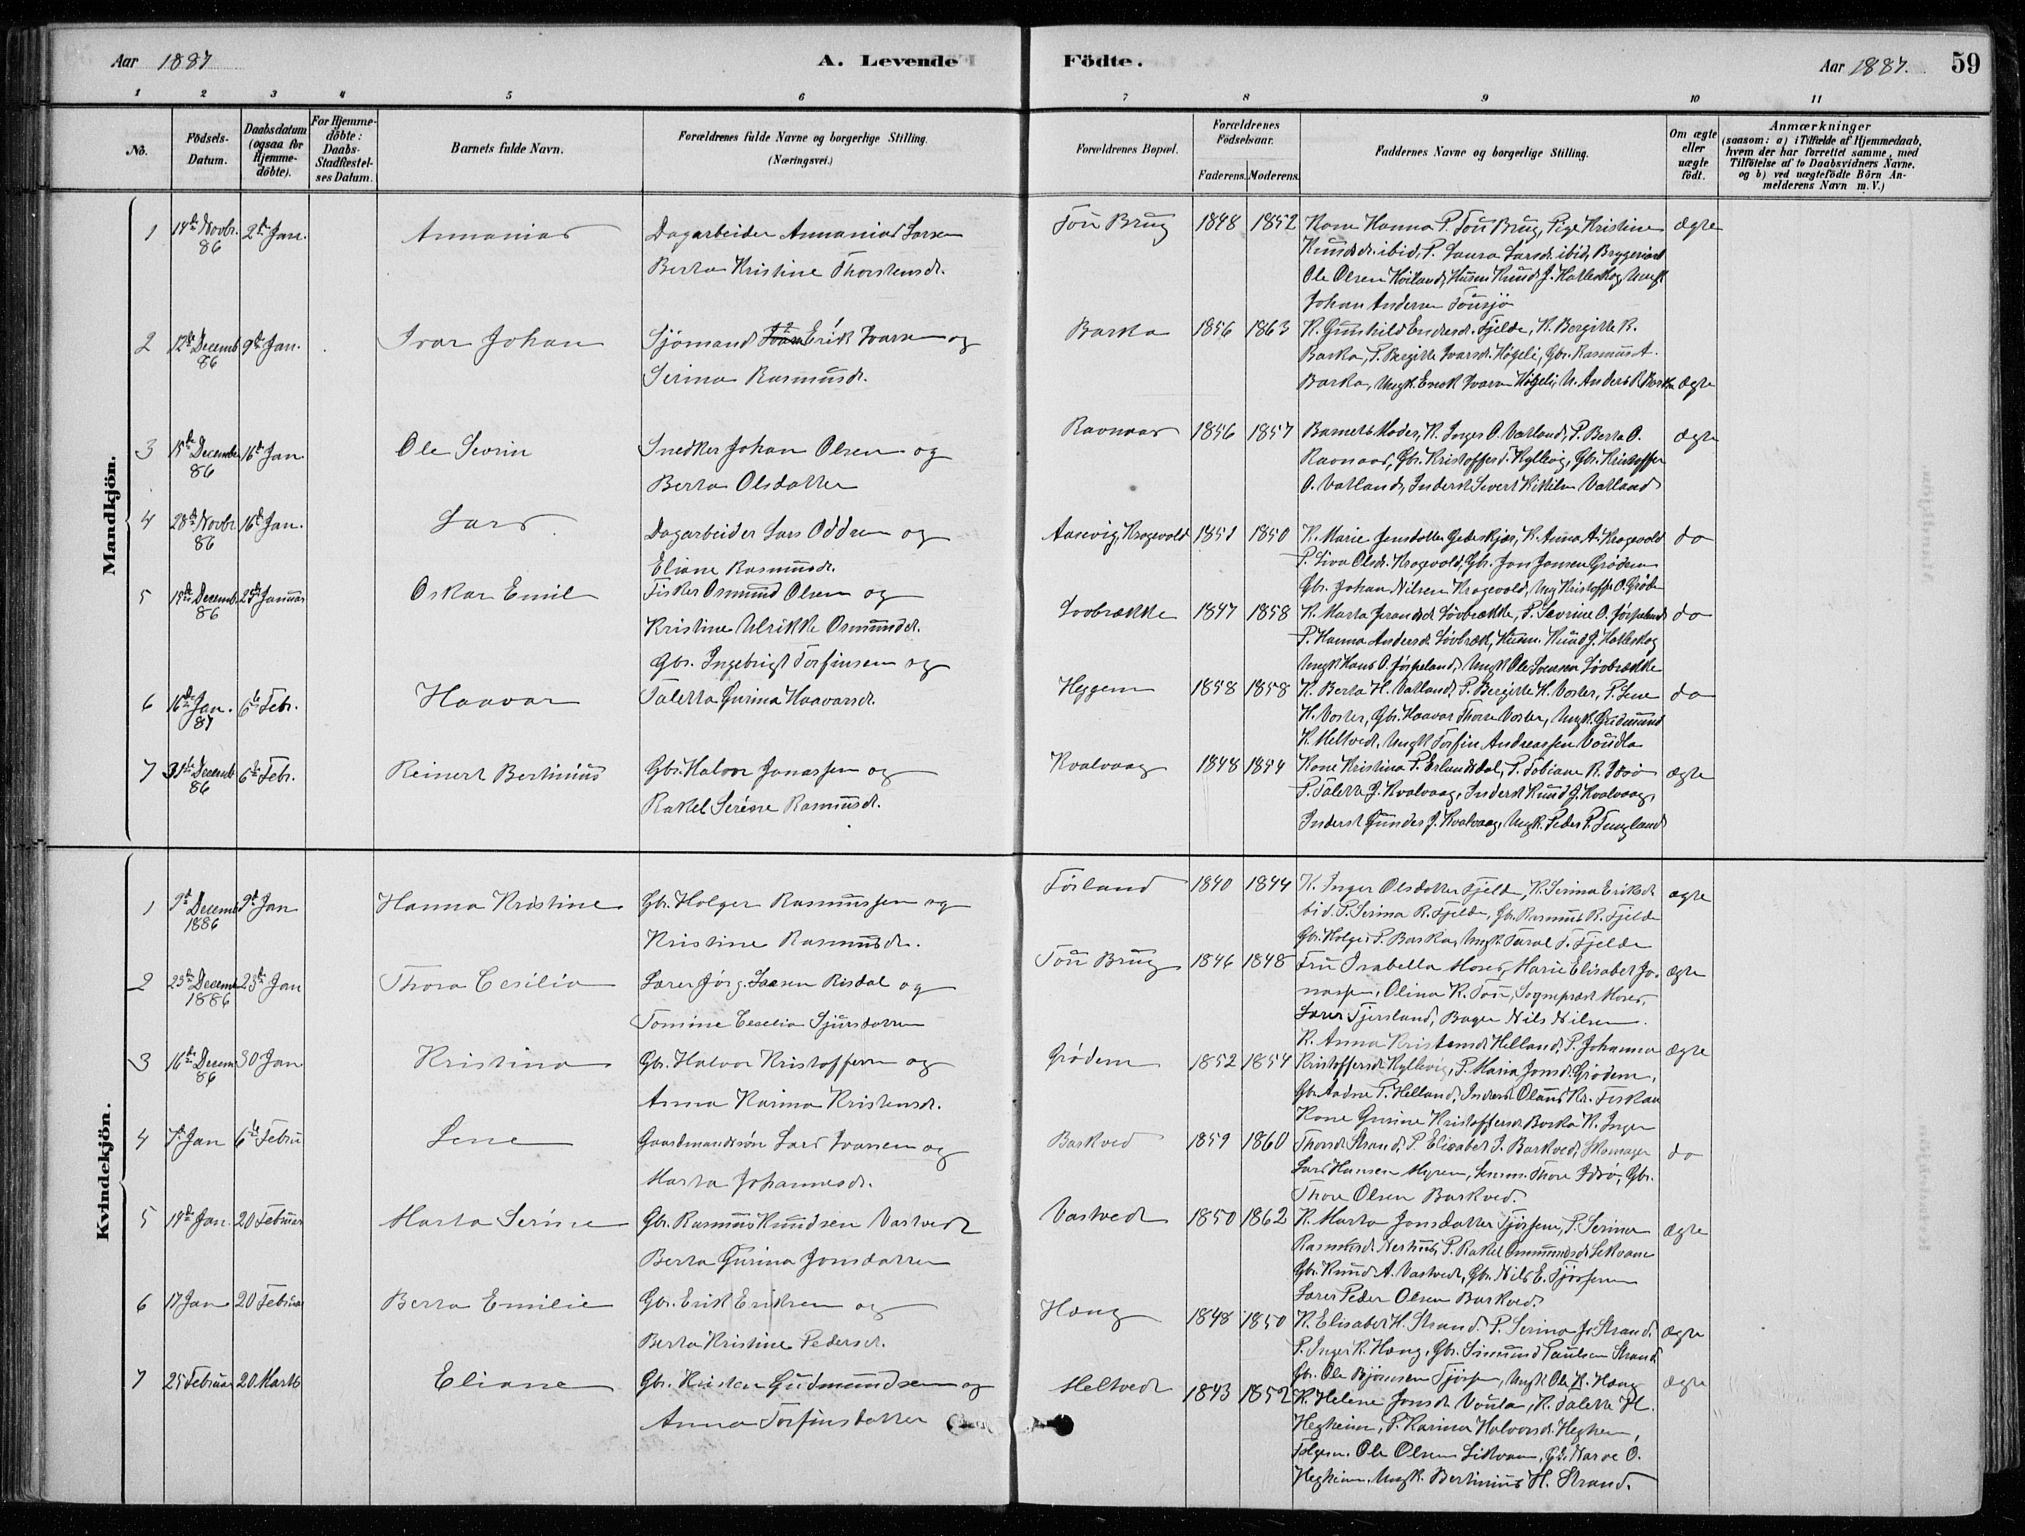 Aar 1887
A. Levende
Födte.
Aar 1887.
59
1 2 3 4 5 6 7 8 9 10 11
No.
Födsels-Datum.
Daabsdatum (ogsaa for Hjemme-döbte).
For Hjemme-döbte: Daabs-Stadfæstel-ses Datum.
Barnets fulde Navn.
Forældrenes fulde Navne og borgerlige Stilling. (Næringsvei.)
Forældrenes Bopæl.
Forældrenes Födselsaar.
Faderens. Moderens.
Faddernes Navne og borgerlige Stilling.
Om ægte eller uægte födt.
Anmærkninger
(saasom: a) i Tilfælde af Hjemmedaab,
hvem der har forrettet samme, med
Tilföielse af to Daabsvidners Navne,
og b) ved uægtefödte Börn An-
melderens Navn m. V.)
Mandkjön.
1 14de Novbr. 86 2de Jan. Annanias
Dagarbeider Annanias Larsen
Berta Kristine Thorstensdr.
Tou Brug 1848 1852 Kone Hanna P. Tou Brug, Pige Kristine ægte
Knudsdr. ibid, P. Laura Larsdr. ibid, Bryggeriarb
Ole Olsen Høiland, Husm Knud J. Halleskog, Ungk
Johan Andersen Tousjø
2 12te Decemb 86 9de Jan. Ivar Johan
Sjømand Erik Ivarsen og
Serina Rasmusdr.
Barka 1856 1863 K. Gunhild Endresdr. Fjelde, K. Bergitte R.
Barka, P. Bergitte Ivarsdr. Høgeli, Gbr. Rasmus A.
Barka, Ungk. Enok Ivarsen Høgeli, U. Anders R Barka ægte
3 15de Decembr 86 16de Jan Ole Sevrin
Snedker Johan Olsen og
Berta Olsdatter
Ravnaas 1856 1857 Barnets Moder, K. Inger O. Vatland, P. Berta O. ægte
Ravnaas, Gbr. Kristoffer d. Kyllevig, Gbr. Kristoffer
O. Vatland, Inderst Sivert Kittilsen Vatland
4 28de Novbr 86 16de Jan. Lars
Dagarbeider Lars Oddsen og
Eliane Rasmusdr.
Aasevig, Kragevold 1851 1850 K. Marie Jensdatter Geiteskjær, K. Anna A. Kragevold do
P. Siva Olsdr. Kragevold, Gbr. Jon Jonsen Grødem
Gbr. Johan Nilsen Kragevold, Ung Kristoffer O. Grøde
5 19de Decemb. 86 Januar Oskar Emil
Fisker Osmund Olsen og
Kristine Ulrikke Osmundsdr.
Lovbrække 1847 1858 K. Marta Jonasdr. Løvbrække, P. Sevrine O. Jørpeland do
P. Hanna Andersdr. Løvbræk, Husm. Knud J. Halleskog
Ungk Hans O. Jørpeland, Ungk Ole Svensen Løvbrække
6 16de Jan. 87 6te Febr. Haavar
Gbr. Ingebrigt Torfinsen og
Taletta Gurina Haavarsdr.
Heggem 1858 1858 K. Berta H. Vatland, P. Bergitte H. Voster, P. Lene do
H. Voster, Gbr. Haavar Thorsen Voster, Ungk. Gudmund
K. Meltvedt, Ungk Torfin Andreassen Voudla
7 31te Decemb 86 6te Febr. Reinert Bertinius
Gbr. Halvor Jonassen og
Rakel Serine Rasmusdr.
Kvalvaag 1848 1854 Kone Kristina P. Erlandsdal, P. Tobiane R. Idsø ægte
P. Taletta J. Kvalvaag, Inderst Knud J. Kvalvaag,
Inderst Gunder J. Kvalvaag, Ungk. Peder P. Tungland
Kvindekjön.
1 9de Decemb 1886 9de Jan Hanna Kristine
Gbr. Holger Rasmussen og
Kristine Rasmusdr.
Førland 1840 1844 K. Inger Olsdatter Fjelde, K. Serina Eriksdr ægte
ibid. P. Serina R. Fjelde, Gbr. Rasmus R. Fjelde
Gbr. Holger P. Barka, Ungk. Taral T. Fjelde
2 23de Decemb 1886 23de Jan Thora Cesilia
Lærer Jørg. Larsen Risdal og
Tomine Cecelia Sjursdatter
Tou Brug 1846 1848 Fru Isabella Moses, Marie Elisabet Jo- ægte
nassen, Olina K. Tou, Sogneprest Moses,
Lærer Tjersland, Bager Nils Nilsen.
3 16de Decem 86 30 Jan Kristina
Gbr. Halvor Kristoffersen og
Anna Karina Kristensdr.
Grødem 1852 1854 K. Anna Kristensdr Helland, P. Johanna ægte
Kristoffersdr Kyllevig, P. Maria Jonsdr. Grødem,
Gbr. Aadne P. Helland, Inderst Olaus Kr. Fiskaa
4 7de Jan 6te Februar Lene
Gaardmandssøn Lars Ivarsen og
Marta Johannesdr.
Barkved 1859 1860 Kone Gurine Kristoffersdr Barka K. Inger
Thorsdr Strand, P. Elisabet J. Barkved, Skomager do
Lars Hansen Myren, Thore Idsø, Gbr.
Thore Olsen Barkved.
5 19de Jan. 20 Februar Marta Serine
Gbr. Rasmus Knudsen Vastvedt
Berta Gurina Jonsdatter
Vastvedt 1850 1862 K. Marta Jonsdatter Tjørsen, P. Serina ægte
Rasmusdr. Nerhus, P. Rakel Osmundsdr. Lekvam
Gbr. Knud A. Vastvedt, Gbr. Nils E. Tjørsem
Lærer Peder Olsen Barkved.
6 17 Jan 20 Februar Berta Emilie
Gbr. Erik Eriksen og
Berta Kristine Pedersdr.
Hæng 1848 1850 K. Elisabet H. Strand, P. Serina J. Strand, ægte
P. Inger K. Hæng, Gbr. Simund Paulsen Strand
Gbr. Ole Bjørnsen Tjørsen, Ungk Ole K. Hæng
7 25 Februar 20 Marts Eliane
Gbr. Kristen Gudmundsen og
Anna Torfinsdatter
Meltvedt 1843 1852 K. Helene Jonsdr. Voula, K. Talette H. ægte
Hegheim, P. Karina Halvorsdr. Heghem,
Ole Olsen Lekvam, Gbr. Narve O.
Hegheim, Ungk. Bertinius H. Strand.